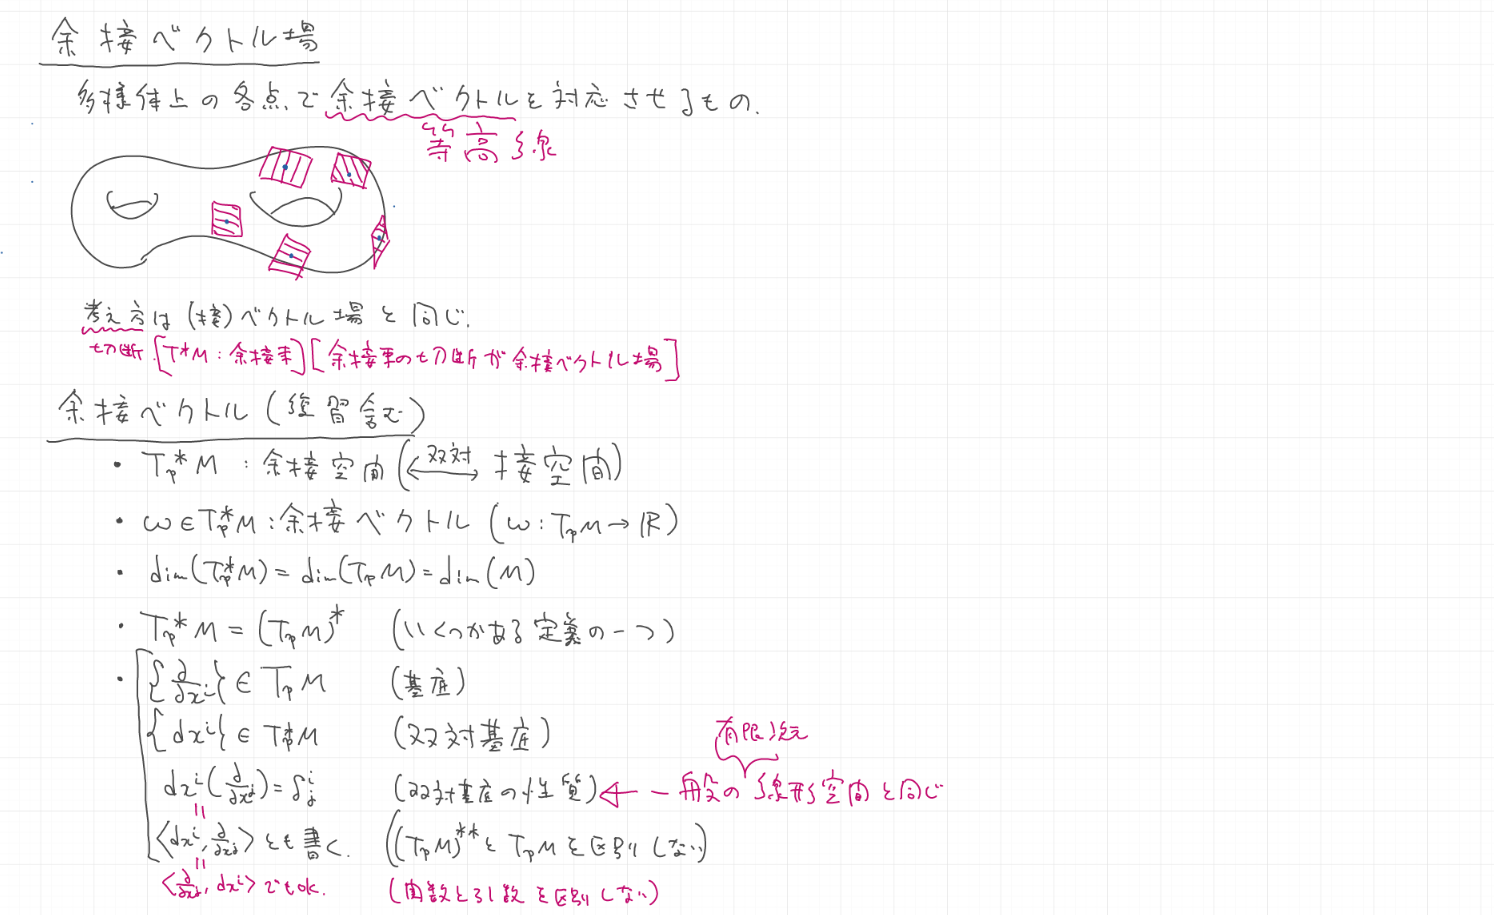 余接ベクトル場
多様体上の各点で余接ベクトルを対応させるもの.
等高線
考え方は(接)ベクトル場と同じ.
切断.[T*M:余接束][余接束の切断が余接ベクトル場]
余接ベクトル(復習含む)
・ Tp*M : 余接空間(⟷双対 接空間)
・ ω∈Tp*M : 余接ベクトル (ω : TpM→ℝ)
・ dim(Tp*M) = dim(TpM) = dim(M)
・ Tp*M = (TpM)* (いくつかある定義の一つ)
・ {∂/∂xⁱ} ∈ TpM (基底)
{dxⁱ} ∈ Tp*M (双対基底)
有限次元
dxⁱ(∂/∂xʲ) = δⁱⱼ (双対基底の性質) ← 一般の線形空間と同じ
||
<dxⁱ, ∂/∂xʲ> とも書く. ((TpM)**と TpM を区別しない)
||
<∂/∂xʲ, dxⁱ> でもok. (関数と引数を区別しない)